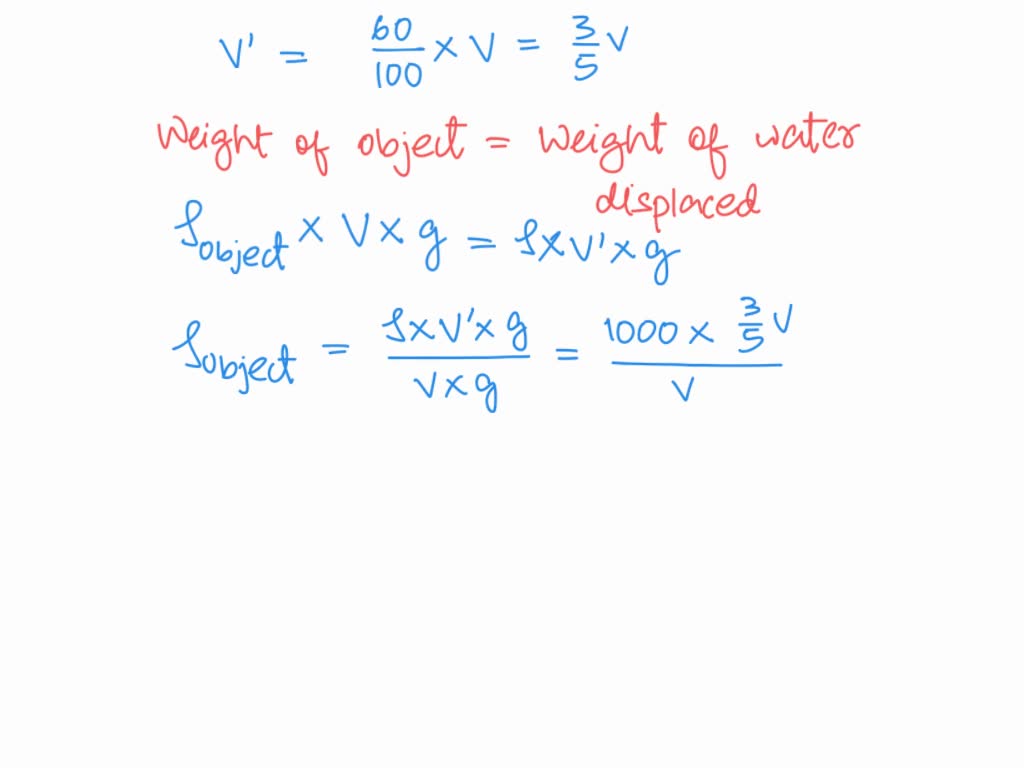 V' = 60/100 × V = 3/5 V
Weight of object = Weight of water
displaced
ρobject × V × g = ρ × V' × g
ρobject = ρ × V' × g / V × g = 1000 × 3/5 V / V